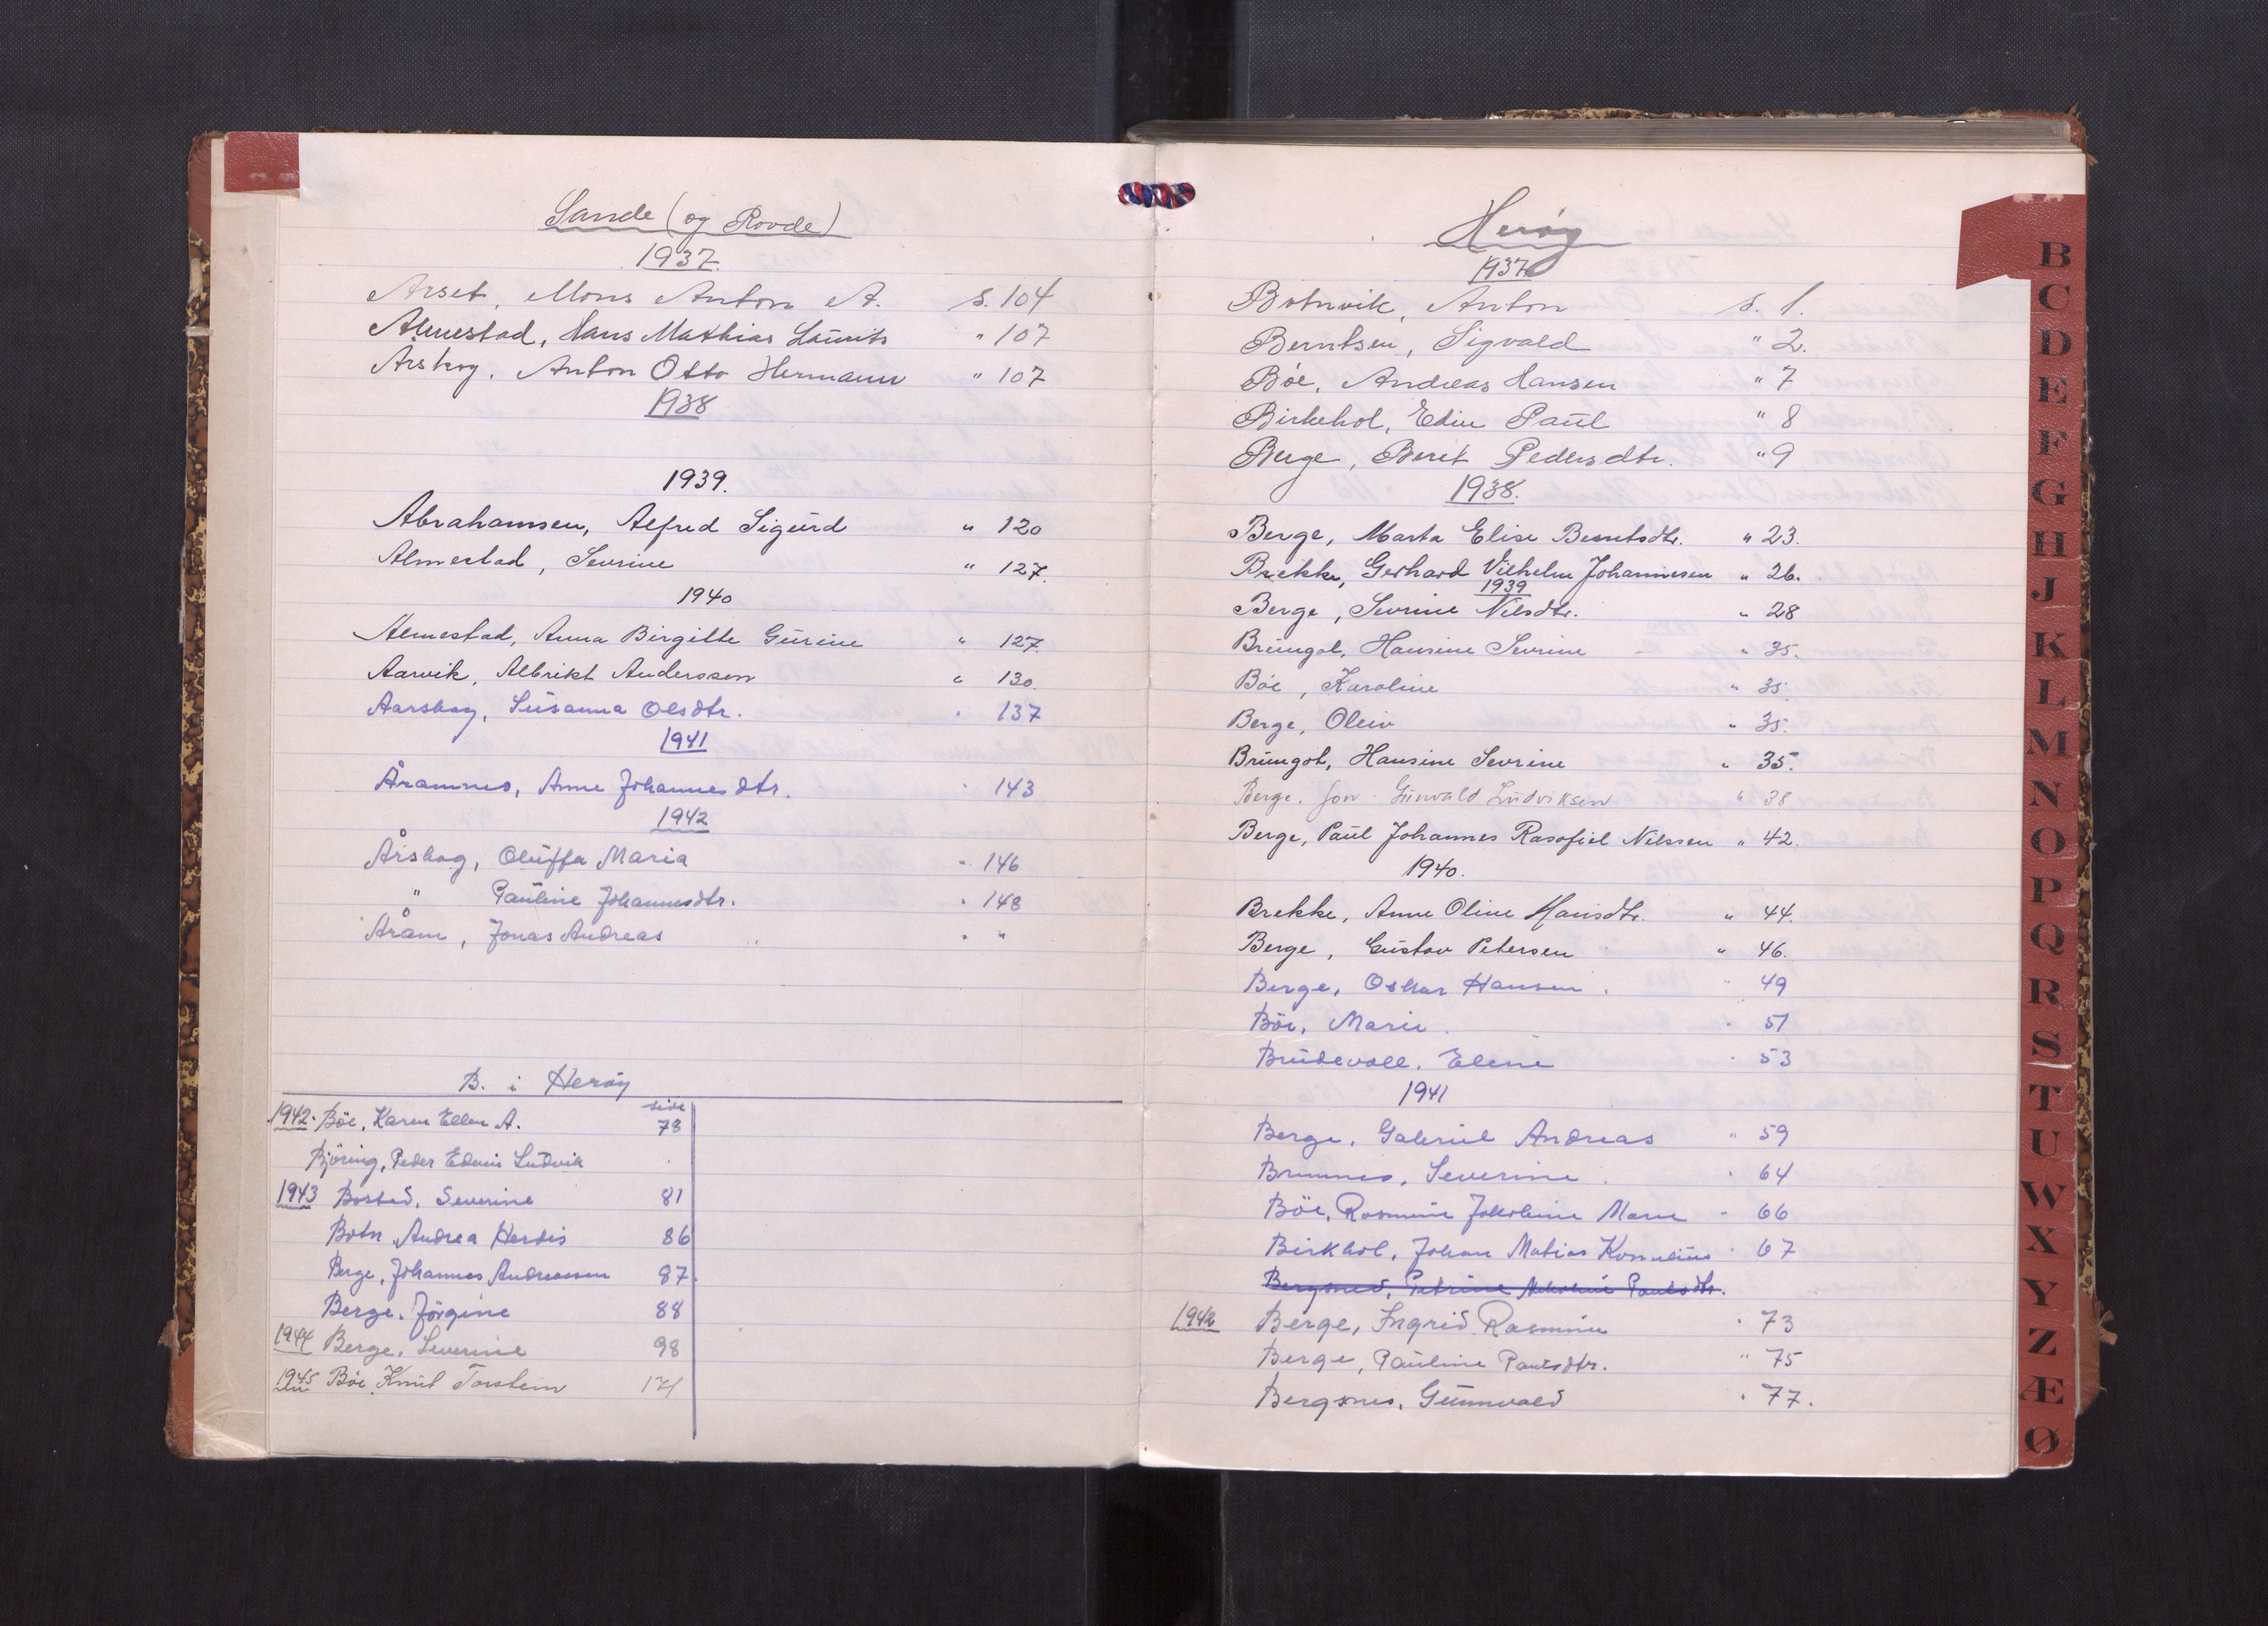 Sande (og Rovde)
1937.
Årset, Mons Anton A. s. 104
Almestad, Hans Mathias Laurits " 107
Årskog, Anton Otto Hermann " 107
1938
1939.
Abrahamsen, Alfred Sigurd " 120
Almestad, Sevrine " 127.
1940
Almestad, Anna Birgitte Gurine " 127.
Aarvik, Albrikt Anderssen " 130.
Aarskog, Susanna Olsdtr. " 137
1941
Åramnes, Anne Johannesdtr. " 143
1942
Årskog, Oluffa Maria " 146
" Pauline Johannesdtr. " 148
Åram, Jonas Andreas " "
B. i Herøy
side
1942. Böe, Karen Ellen A. 78
Björing, Peder Edvin Ludvik "
1943 Bostad, Severine 81
Botn, Andrea Herdis 86
Berge, Johannes Andreassen 87.
Berge, Jörgine 88
1944 Berge, Severine 98
1945 Böe, Knut Torstein 171
Herøy
1937
Botnvik, Anton s. 1.
Berntsen, Sigvald " 2.
Bøe, Andreas Hansen " 7
Birkehol, Edin Paul " 8
Berge, Beret Pedersdtr. " 9
1938.
Berge, Marta Elise Berntsdtr. " 23.
Brekke, Gerhard Vilhelm Johannesen " 26.
1939
Berge, Sevrine Nilsdtr. " 28
Brungot, Hansine Sevrine " 35.
Böe, Karoline " 35.
Berge, Oleiv " 35.
Brungot, Hansine Sevrine " 35.
Berge, Jon Gunvald Ludviksen " 38
Berge, Paul Johannes Rasofiel Nilssen " 42.
1940.
Brekke, Anne Oline Hansdtr. " 44.
Berge, Gustav Petersen " 46.
Berge, Oskar Hansen " 49
Böe, Marie " 51
Brudevoll, Elene " 53
1941
Berge, Gabriel Andreas " 59
Brunnes, Severine " 64
Böe, Rasmine Jakobine Marie " 66
Birkhol, Johan Matias Kornelius " 67
Bergsnes, Petrine Nikoline Paulsdtr.
1942 Berge, Ingrid Rasmine " 73
Berge, Pauline Paulsdtr. " 75
Bergsnes, Gunnvald " 77.
B
C
D
E
F
G
H
J
K
L
M
N
O
P
Q
R
S
T
U
W
X
Y
Z
Æ
Ø